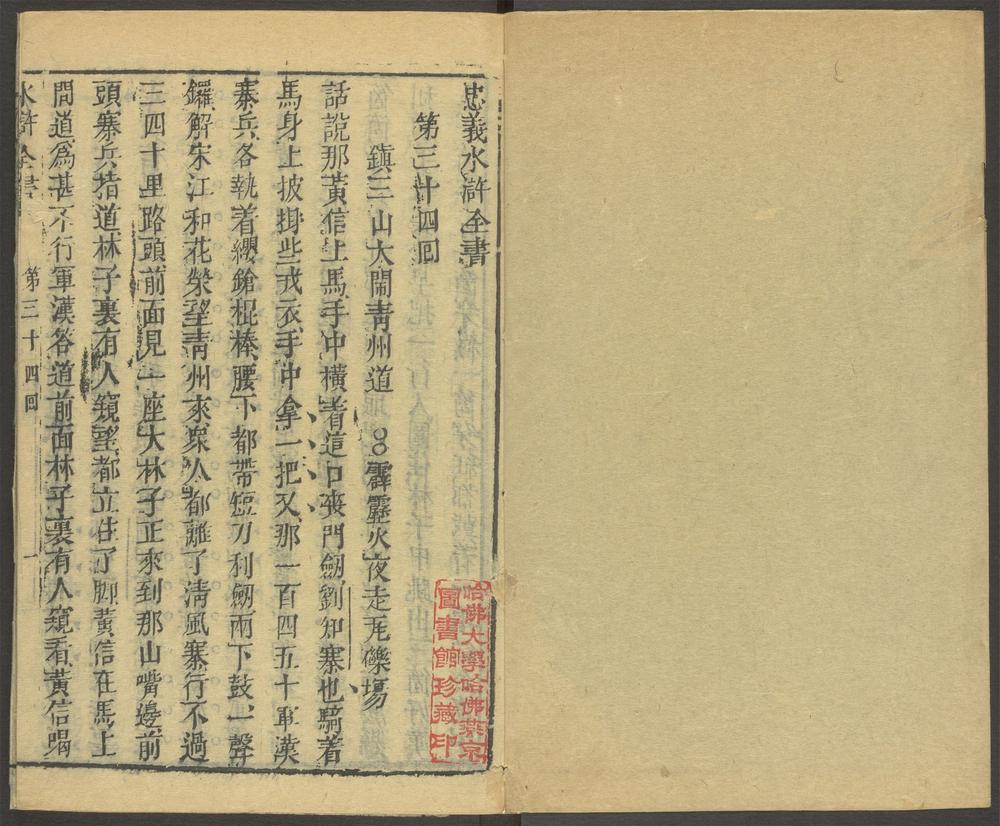 忠義水滸全書
第三十四回
鎮三山大鬧青州道　○霹靂火夜走瓦礫塲
話說那黃信上馬手中橫着這口喪門劒劉知寨也騎着
馬身上披掛些戎衣手中拿一把叉那一百四五十軍漢
寨兵各執着纓鎗棍棒腰下都帶短刀利劒兩下鼓一聲
鑼解宋江和花榮望青州來衆人都離了清風寨行不過
三四十里路頭前面見一座大林子正來到那山嘴邊前
頭寨兵指道林子裏有人窺望都立住了脚黃信在馬上
問道爲甚不行軍漢答道前面林子裏有人窺看黃信喝
水滸全書　第三十四回　一
哈佛大學哈佛燕京
圖書館珍藏印